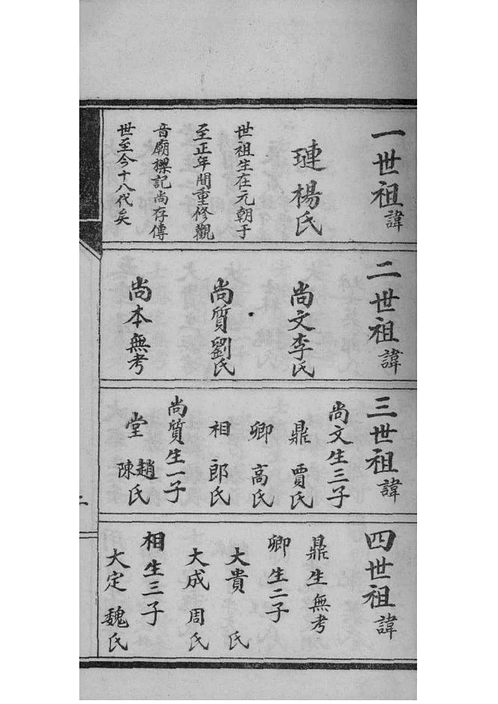 一世祖諱
璉楊氏
世祖生在元朝于
至正年間重修觀
音廟樑記尚存傳
世至今十八代矣
二世祖諱
尚文李氏
尚質劉氏
尚本無考
三世祖諱
尚文生三子
鼎 賈氏
卿 高氏
相 郎氏
尚質生一子
堂 趙陳氏
四世祖諱
鼎生無考
卿生二子
大貴 氏
大成 周氏
相生三子
大定 魏氏